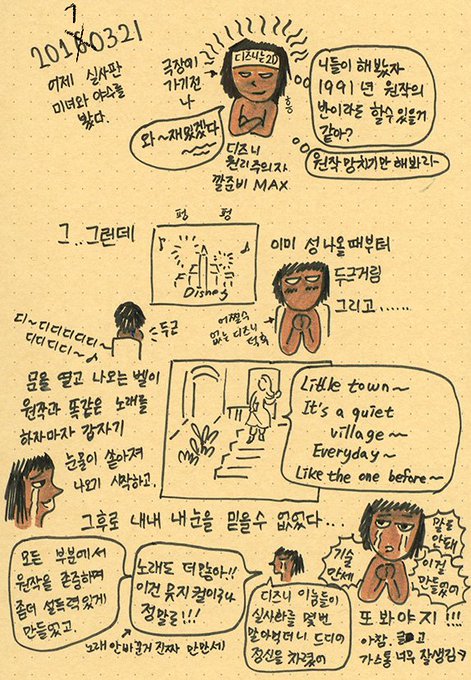 20170321
어제 실사판
미녀와 야수를
봤다.
극장에
가기전
나
디즈니는2D
흥
와~재밌겠다
디즈니
원리주의자
깔준비 MAX
니들이 해봤자
1991년 원작의
반이라도 할수 있을거
같아?
원작 망치기만 해봐라-
그..그런데
펑 펑
Disney
이미 성 나올때부터
두근거림
그리고......
어쩔수
없는 디즈니
덕후
디~디디디디디
디디디디~
두근
문을 열고 나오는 벨이
원작과 똑같은 노래를
하자마자 갑자기
눈물이 쏟아져
나오기 시작하고.
Little town~
It's a quiet
village~
Everyday~
Like the one before~
그후로 내내 내 눈을 믿을수 없었다...
모든 부분에서
원작을 존중하며
좀더 설득력있게
만들었고.
노래도 더 많아!!
이건 뮤지컬이구나
정말로!!!
노래 안바꾼거 진짜 만만세
디즈니 이놈들이
실사화를 몇번
말아먹더니 드디어
정신을 차렸어
기술
만세
말도
안돼
이걸
만들었어
또 봐야지!!!
아참.
고
가스통 너무 잘생김